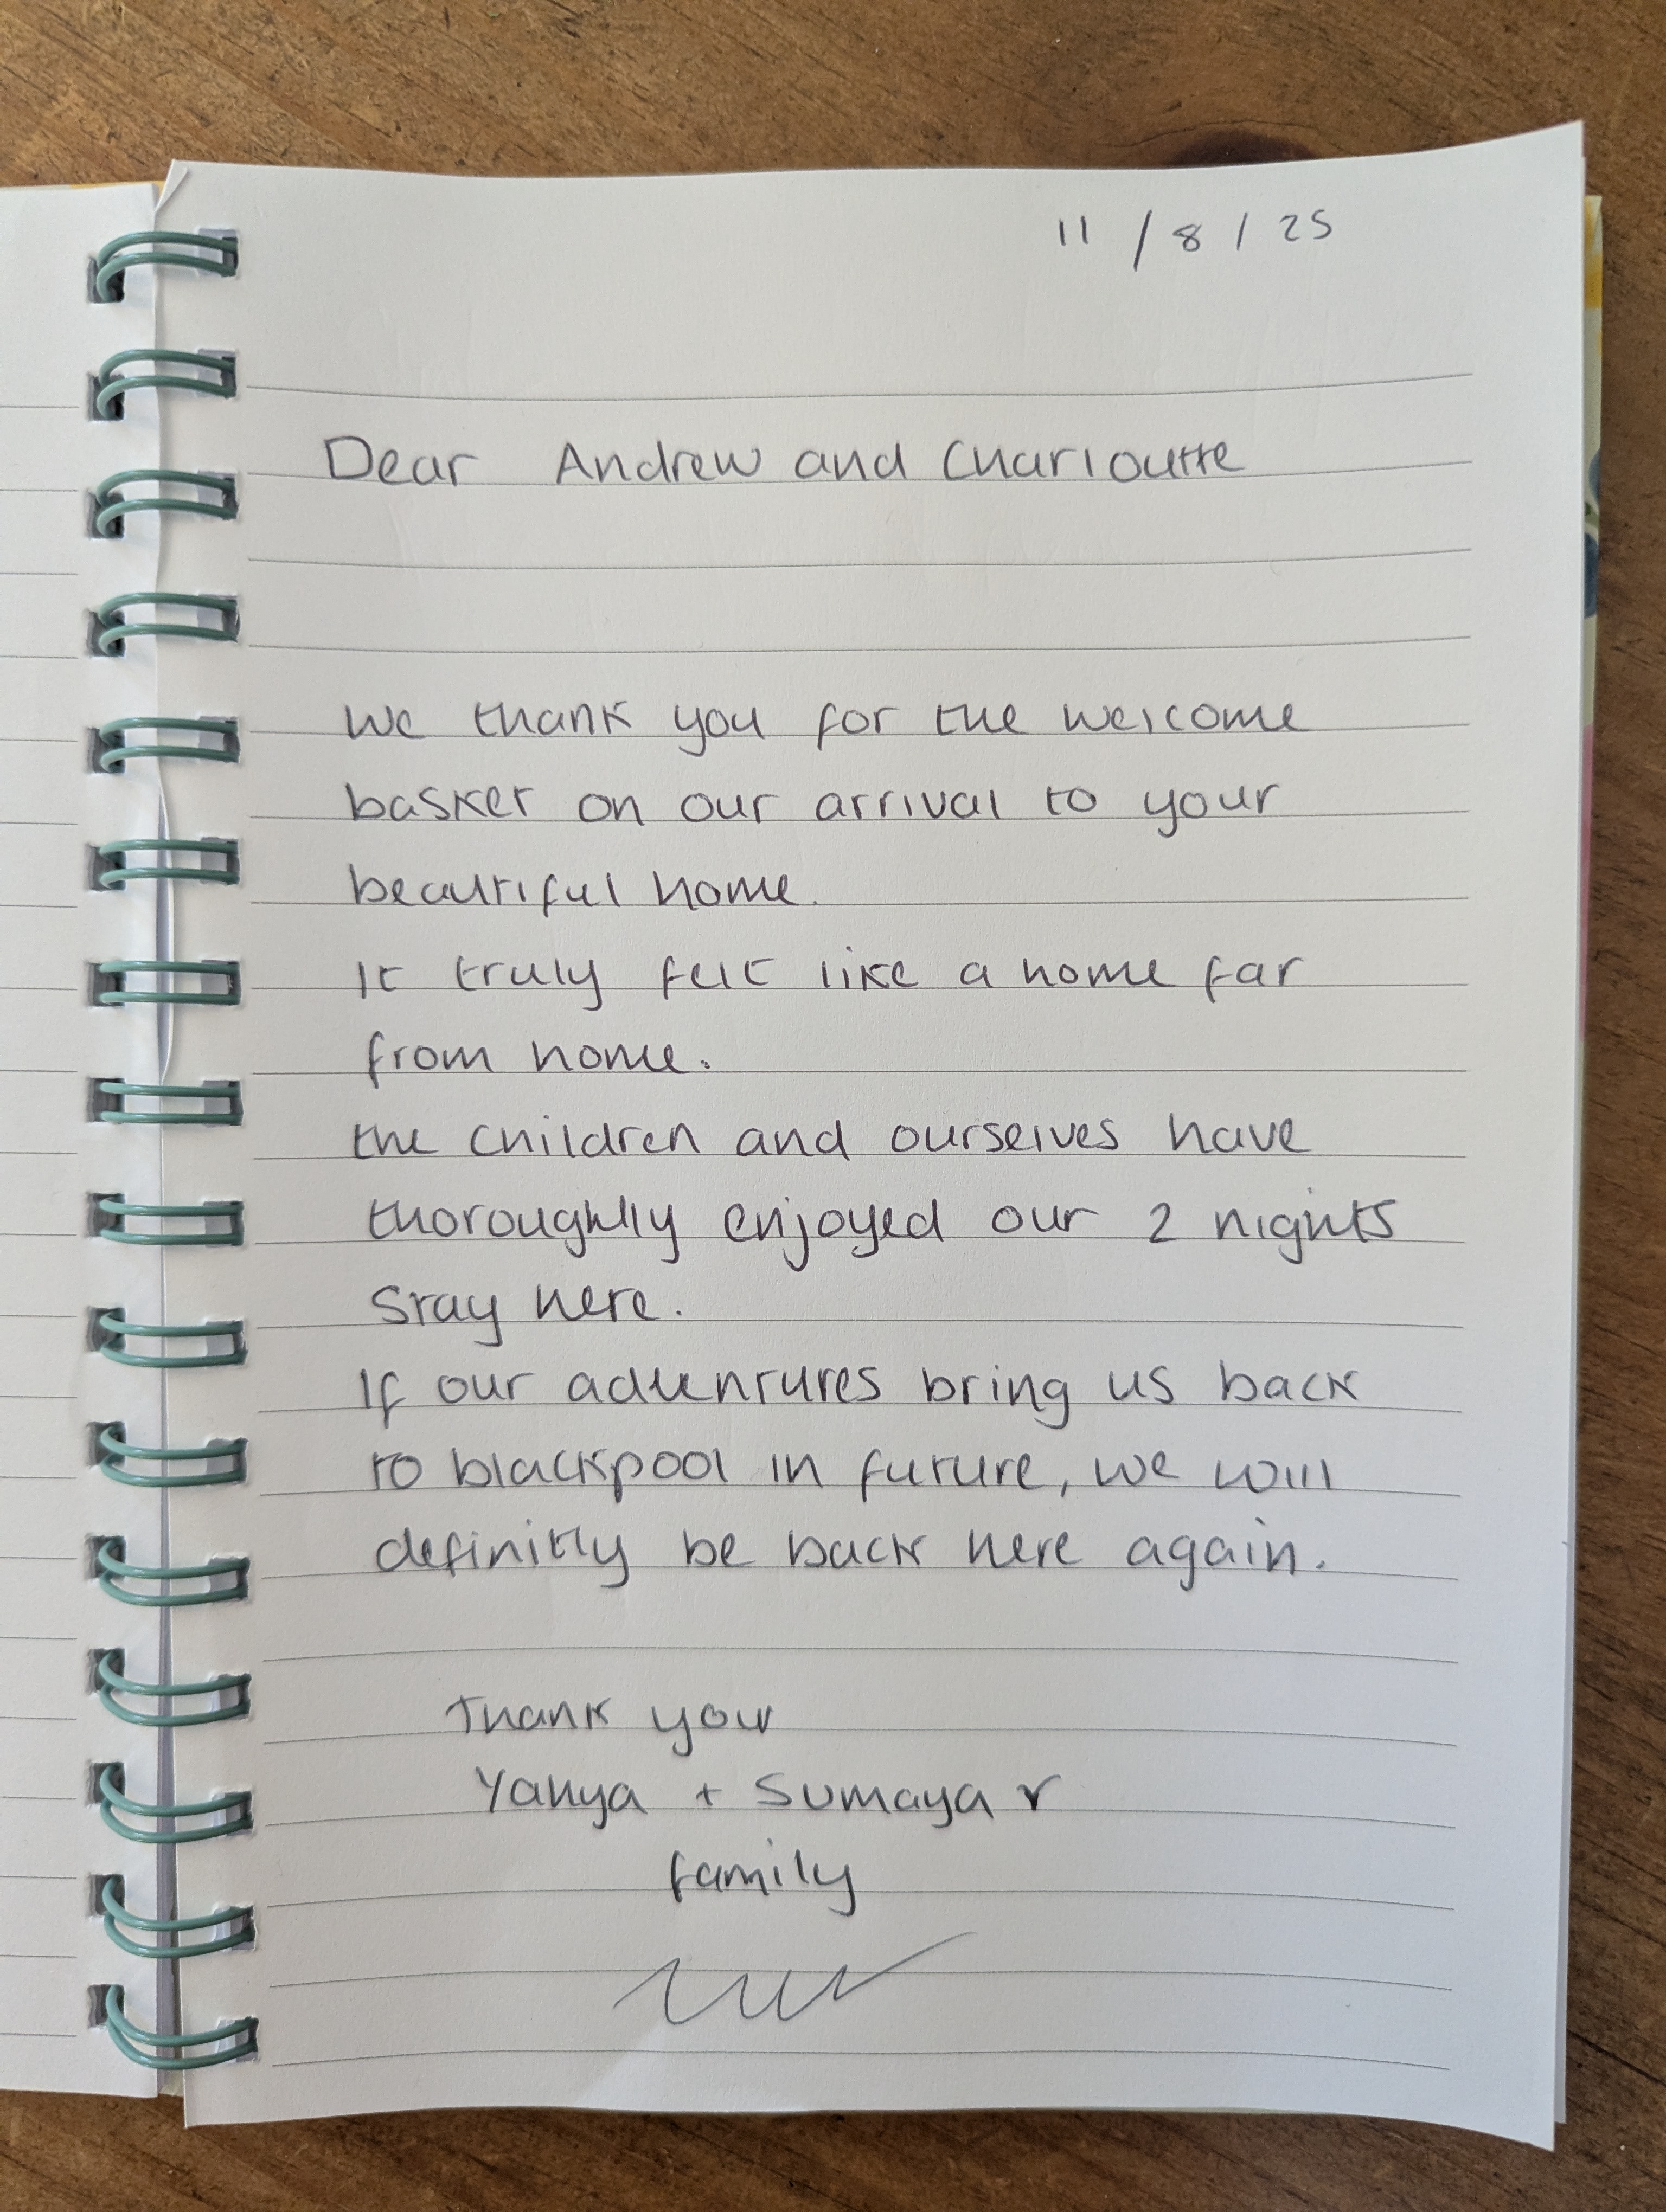 11 / 8 / 25
Dear Andrew and Charloutte
We thank you for the welcome
basket on our arrival to your
beautiful home.
It truly felt like a home far
from home.
the children and ourselves have
thoroughly enjoyed our 2 nights
stay here.
If our adventures bring us back
to blackpool in future, we will
definitly be back here again.
Thank you
Yahya + Sumaya +
family